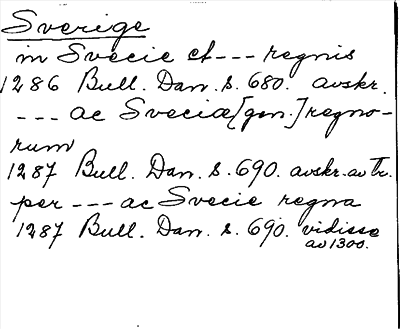 Sverige
in Svecie et --- regnis
1286 Bull. Dan. s. 680. avskr.
--- ac Sveciæ [gen.] regno-
rum
1287 Bull. Dan. s. 690. avskr. av Tr.
per --- ac Svecie regna
1287 Bull. Dan. s. 690. vidisse
av 1300.